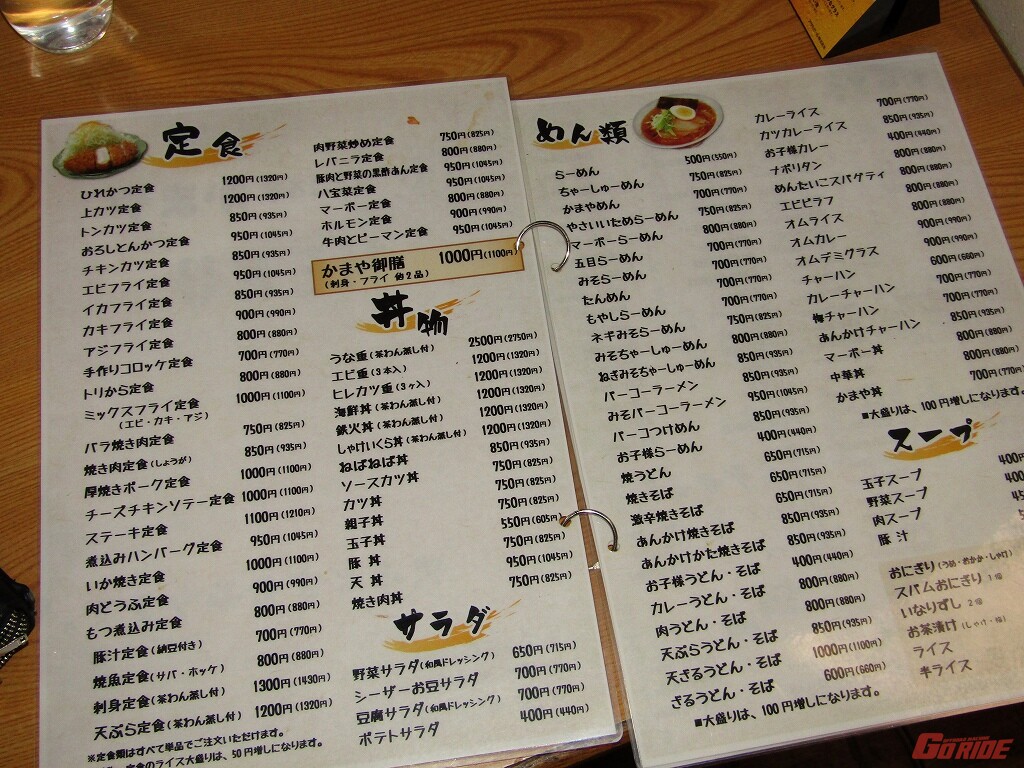 定食
ひれかつ定食 1200円(1320円)
上カツ定食 1200円(1320円)
トンカツ定食 850円(935円)
おろしとんかつ定食 950円(1045円)
チキンカツ定食 850円(935円)
エビフライ定食 950円(1045円)
イカフライ定食 850円(935円)
カキフライ定食 900円(990円)
アジフライ定食 800円(880円)
手作りコロッケ定食 700円(770円)
トリから定食 800円(880円)
ミックスフライ定食 1000円(1100円)
(エビ・カキ・アジ)
バラ焼き肉定食 750円(825円)
焼き肉定食(しょうが) 850円(935円)
厚焼きポーク定食 1000円(1100円)
チーズチキンソテー定食 1000円(1100円)
ステーキ定食 1100円(1210円)
煮込みハンバーグ定食 950円(1045円)
いか焼き定食 1000円(1100円)
肉とうふ定食 900円(990円)
もつ煮込み定食 800円(880円)
豚汁定食(納豆付き) 700円(770円)
焼魚定食(サバ・ホッケ) 800円(880円)
刺身定食(茶わん蒸し付) 1300円(1430円)
天ぷら定食(茶わん蒸し付) 1200円(1320円)
※定食類はすべて単品でご注文いただけます。
定食のライス大盛りは、50円増しになります。
肉野菜炒め定食 750円(825円)
レバニラ定食 800円(880円)
豚肉と野菜の黒酢あん定食 950円(1045円)
八宝菜定食 950円(1045円)
マーボー定食 800円(880円)
ホルモン定食 900円(990円)
牛肉とピーマン定食 950円(1045円)
かまや御膳 1000円(1100円)
(刺身・フライ 他2品)
丼物
うな重(茶わん蒸し付) 2500円(2750円)
エビ重(3本入) 1200円(1320円)
ヒレカツ重(3ヶ入) 1200円(1320円)
海鮮丼(茶わん蒸し付) 1200円(1320円)
鉄火丼(茶わん蒸し付) 1200円(1320円)
しゃけいくら丼(茶わん蒸し付) 1200円(1320円)
ねばねば丼 850円(935円)
ソースカツ丼 750円(825円)
カツ丼 750円(825円)
親子丼 750円(825円)
玉子丼 550円(605円)
豚丼 750円(825円)
天丼 950円(1045円)
焼き肉丼 750円(825円)
サラダ
野菜サラダ(和風ドレッシング) 650円(715円)
シーザーお豆サラダ 700円(770円)
豆腐サラダ(和風ドレッシング) 700円(770円)
ポテトサラダ 400円(440円)
めん類
らーめん 500円(550円)
ちゃーしゅーめん 750円(825円)
かまやめん 700円(770円)
やさいいためらーめん 750円(825円)
マーボーらーめん 800円(880円)
五目らーめん 700円(770円)
みそらーめん 700円(770円)
たんめん 700円(770円)
もやしらーめん 700円(770円)
ネギみそらーめん 750円(825円)
みそちゃーしゅーめん 800円(880円)
ねぎみそちゃーしゅーめん 850円(935円)
パーコーラーメン 850円(935円)
みそパーコーラーメン 950円(1045円)
パーコつけめん 850円(935円)
お子様らーめん 400円(440円)
焼うどん 650円(715円)
焼きそば 650円(715円)
激辛焼きそば 650円(715円)
あんかけ焼きそば 850円(935円)
あんかけかた焼きそば 850円(935円)
お子様うどん・そば 400円(440円)
カレーうどん・そば 800円(880円)
肉うどん・そば 800円(880円)
天ぷらうどん・そば 850円(935円)
天ざるうどん・そば 1000円(1100円)
ざるうどん・そば 600円(660円)
■大盛りは、100円増しになります。
カレーライス 700円(770円)
カツカレーライス 850円(935円)
お子様カレー 400円(440円)
ナポリタン 800円(880円)
めんたいこスパゲティ 800円(880円)
エビピラフ 800円(880円)
オムライス 800円(880円)
オムカレー 900円(990円)
オムデミグラス 900円(990円)
チャーハン 600円(660円)
カレーチャーハン 700円(770円)
梅チャーハン 700円(770円)
あんかけチャーハン 850円(935円)
マーボー丼 800円(880円)
中華丼 800円(880円)
かまや丼 700円(770円)
■大盛りは、100円増しになります。
スープ
玉子スープ 400
野菜スープ 400
肉スープ
豚汁
おにぎり(うめ・おかか・しゃけ)
スパムおにぎり 1個
いなりずし 2個
お茶漬け(しゃけ・梅)
ライス
半ライス
GORIDE